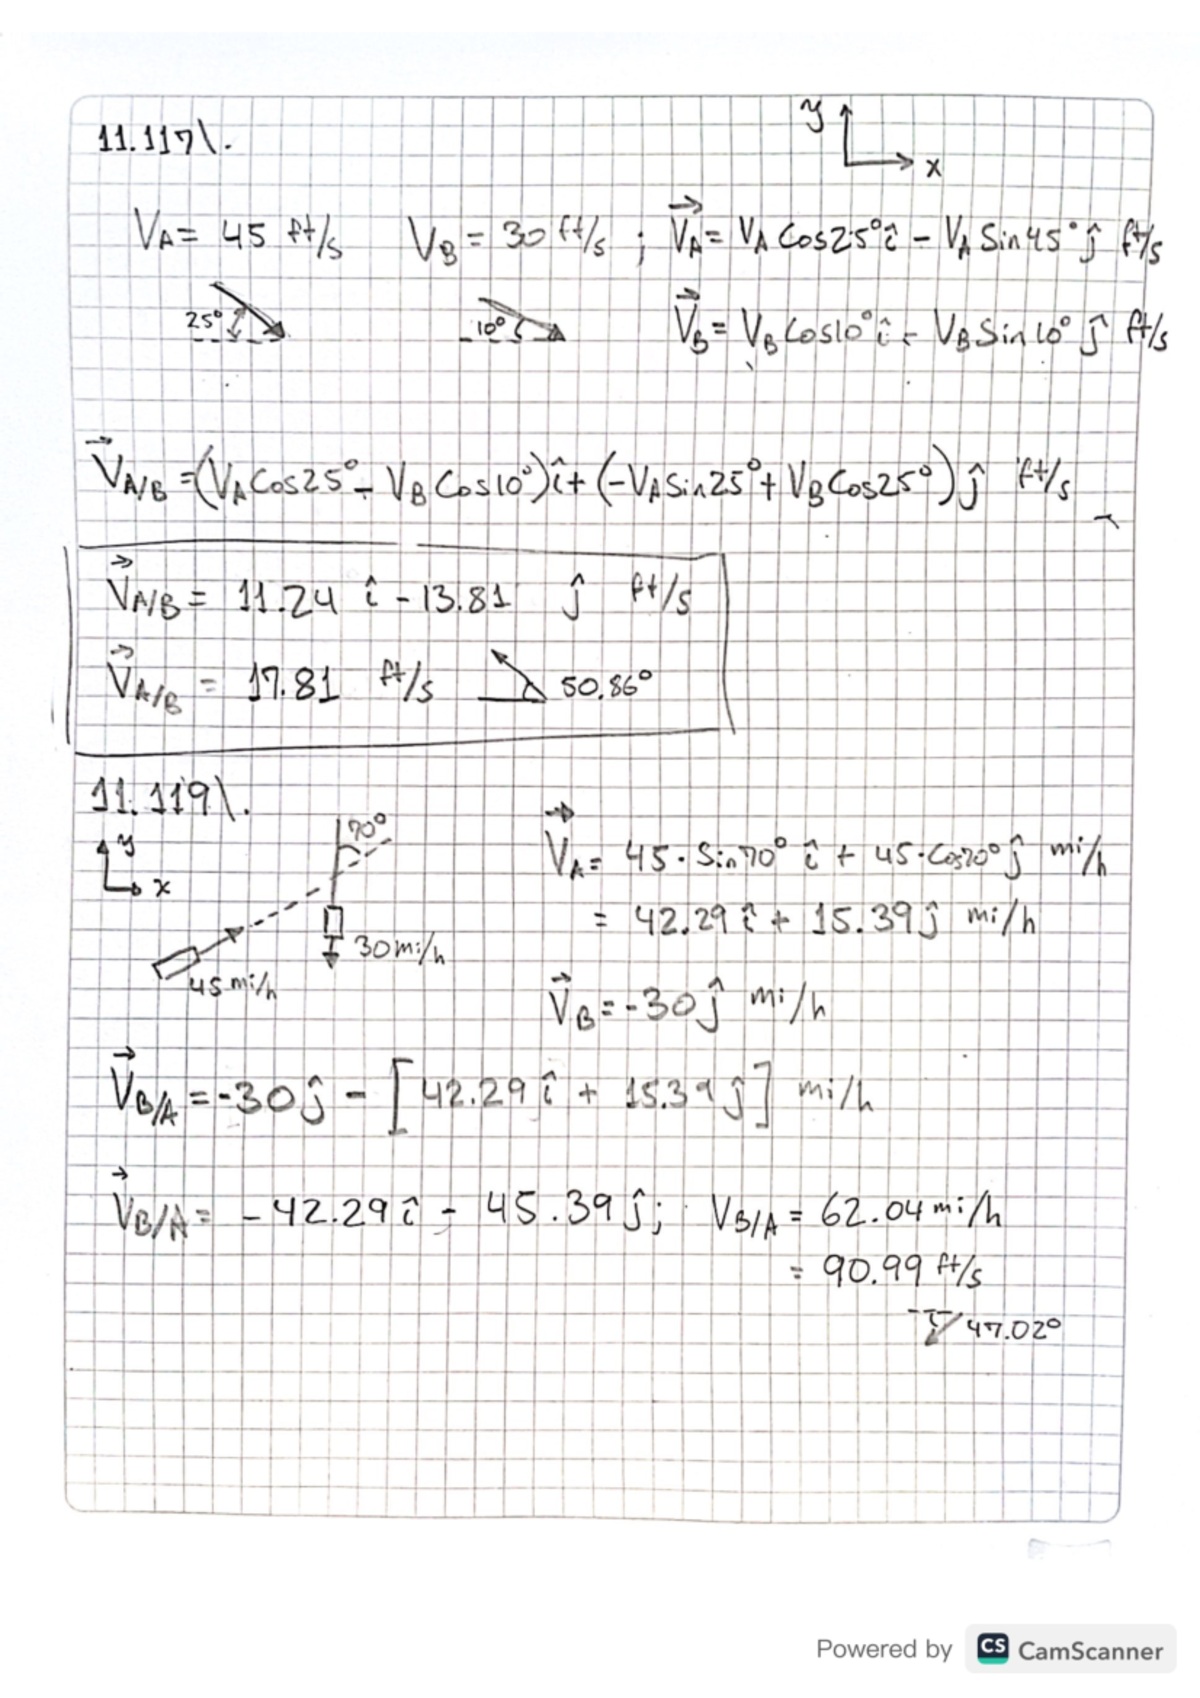 11.117\.
y
x
VA = 45 ft/s VB = 30 ft/s ; V⃗A = VA Cos25° î - VA Sin45° ĵ ft/s
25° 10° V⃗B = VB Cos10° î - VB Sin10° ĵ ft/s
V⃗A/B = (VA Cos25° - VB Cos10°) î + (-VA Sin25° + VB Cos25°) ĵ ft/s
V⃗A/B = 11.24 î - 13.81 ĵ ft/s
V⃗A/B = 17.81 ft/s 50.86°
11.119\.
y
x
70°
30 mi/h
45 mi/h
V⃗A = 45 · Sin70° î + 45 · Cos70° ĵ mi/h
= 42.29 î + 15.39 ĵ mi/h
V⃗B = -30 ĵ mi/h
V⃗B/A = -30 ĵ - [42.29 î + 15.39 ĵ] mi/h
V⃗B/A = -42.29 î - 45.39 ĵ ; VB/A = 62.04 mi/h
= 90.99 ft/s
47.02°
Powered by CS CamScanner